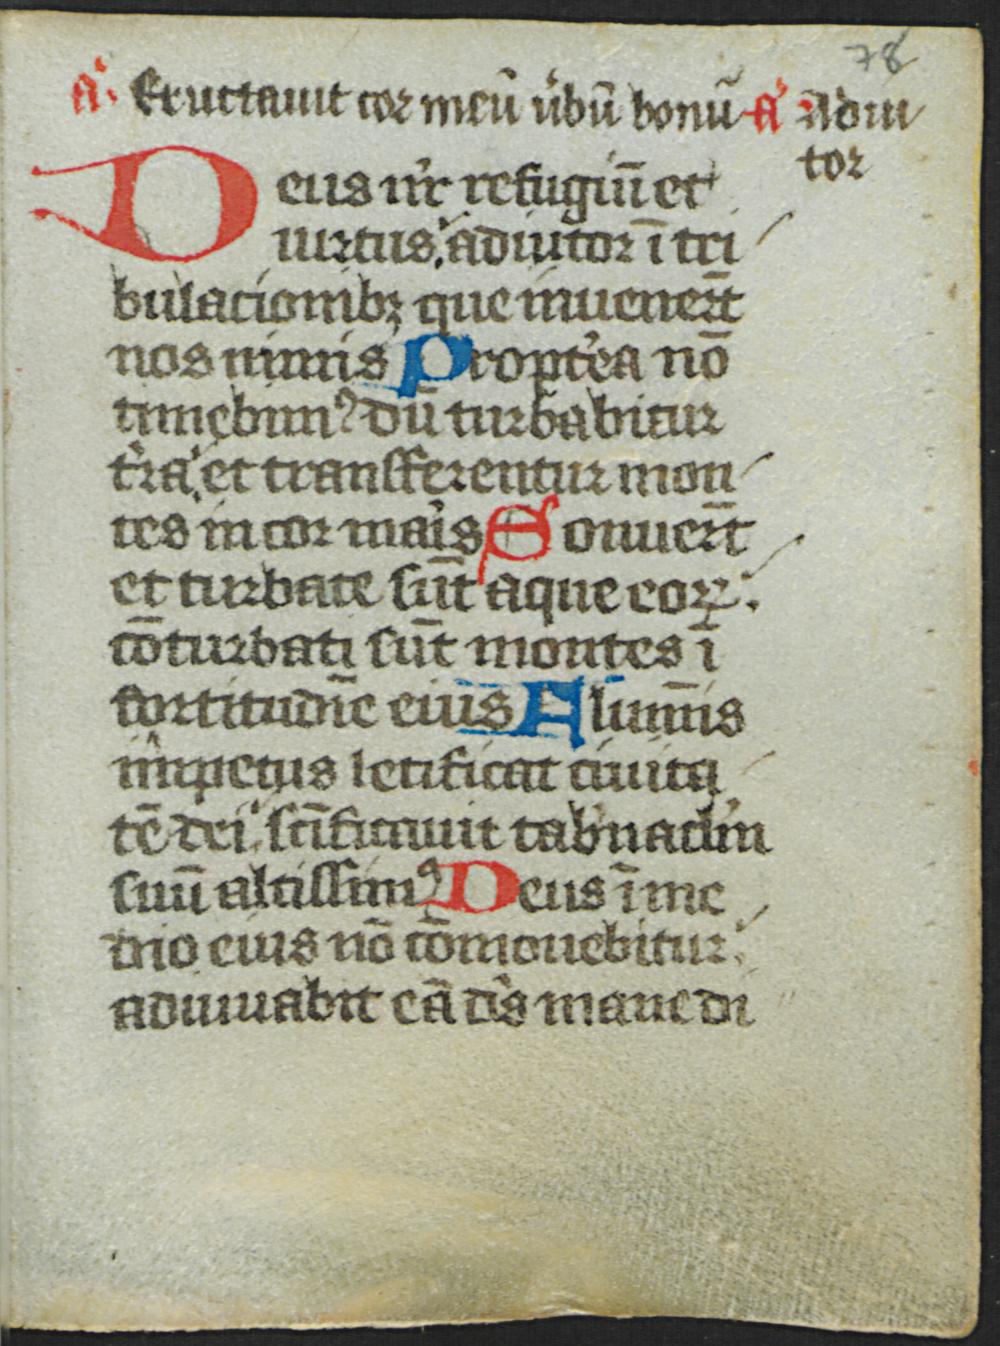 78
a᷎ Eructauit cor meū ūbū bonū a᷎ Adiu
tor
Deus nr̄ refugiū et
uirtus adiutor ī tri
bulacionibꝫ que inuenert̄
nos nimis Propt̾ea nō
timebimꝰ dū turbabitur
t̾ra et transferentur mon
tes in cor mar̾is Sonuert̄
et turbate sūt aque eoꝝ
cōturbati sūt montes ī
fortitudīe eius Flumīs
impetus letificat ciuita
tē dei sc̄ificauit tab̾nac̾lm
suū altissimꝰ Deus ī me
dio eius nō cōmouebitur
adiuuabit eā ds̄ mane di